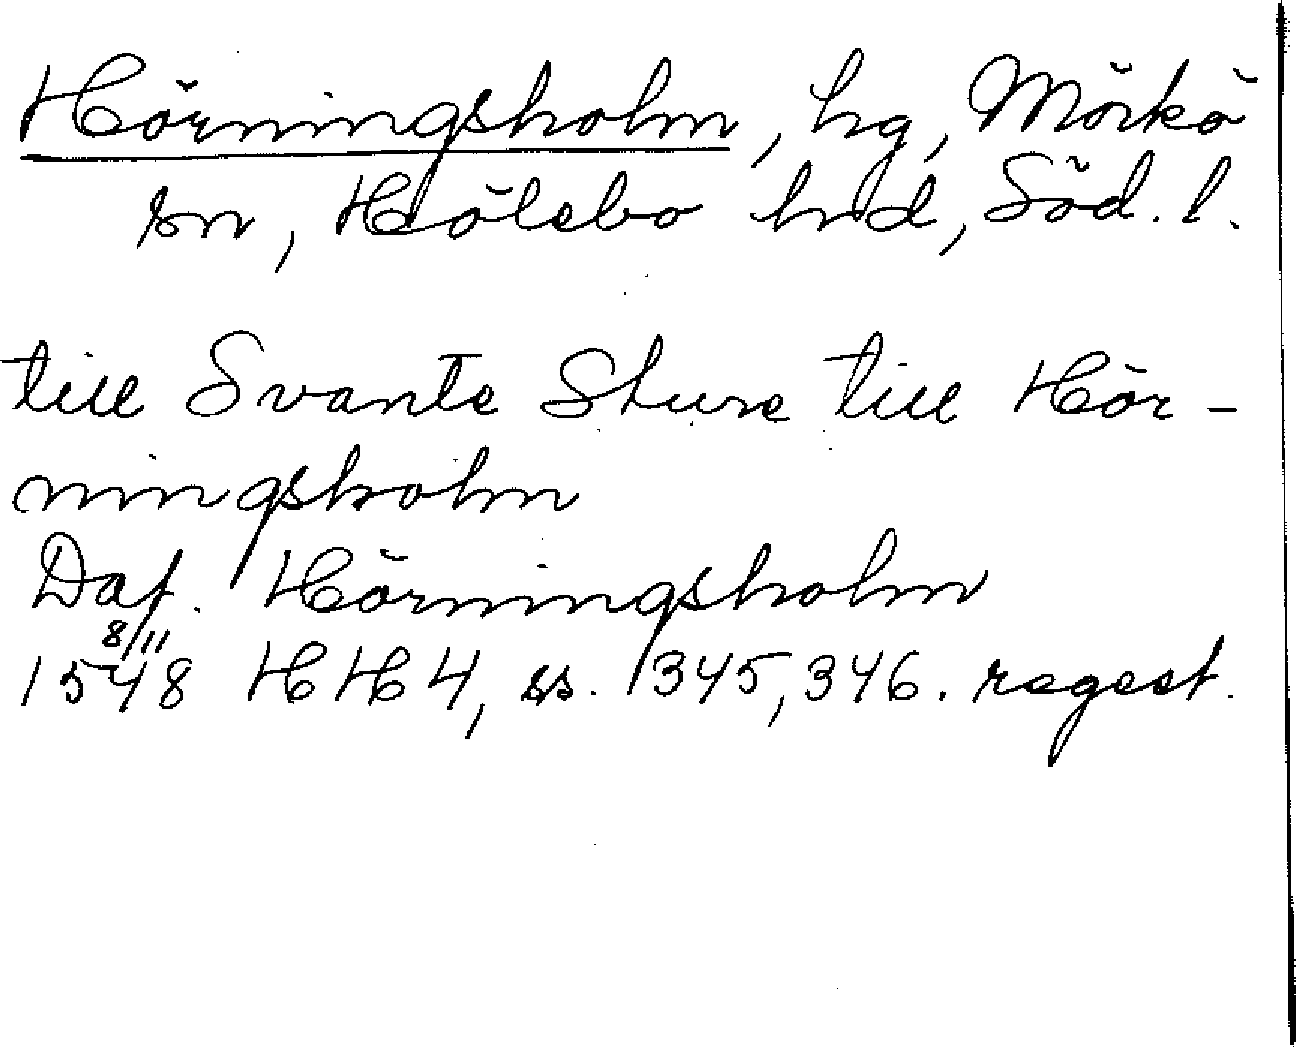 Hörningsholm, hg, Mörkö
sn, Hölebo hd, Söd. l.
till Svante Sture till Hör-
ningsholm
Dat. Hörningsholm
8/11
1548 HH 4, ss. 345, 346. regest.